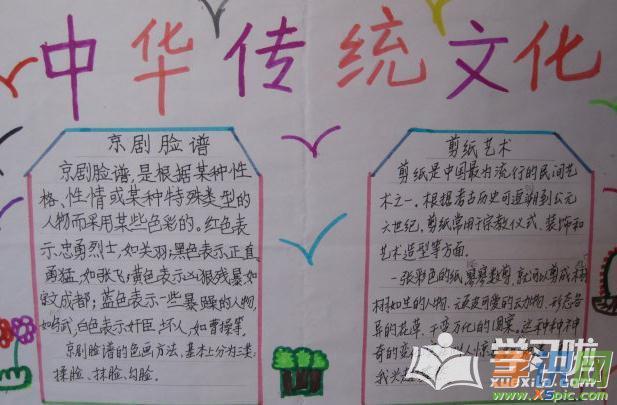 中华传统文化
京剧脸谱
京剧脸谱,是根据某种性
格、性情或某种特殊类型的
人物而采用某些色彩的。红色表
示忠勇烈士,如关羽;黑色表示正直
勇猛,如张飞;黄色表示凶狠残暴如
文成都;蓝色表示一些暴躁的人物,
白色表示奸臣、坏人,如曹操等。
京剧脸谱的色画方法,基本上分为三类:
揉脸、抹脸、勾脸。
剪纸艺术
剪纸是中国最为流行的民间艺
术之一。根据考古历史可追溯到公元
六世纪,剪纸常用于宗教仪式、装饰和
艺术造型等方面.
一张彩色的纸,就可以剪成
如生的人物、可爱的动物、形态各
异的花草、千变万化的图案。
奇的
学习啦
xuexila.com
XSpic.com